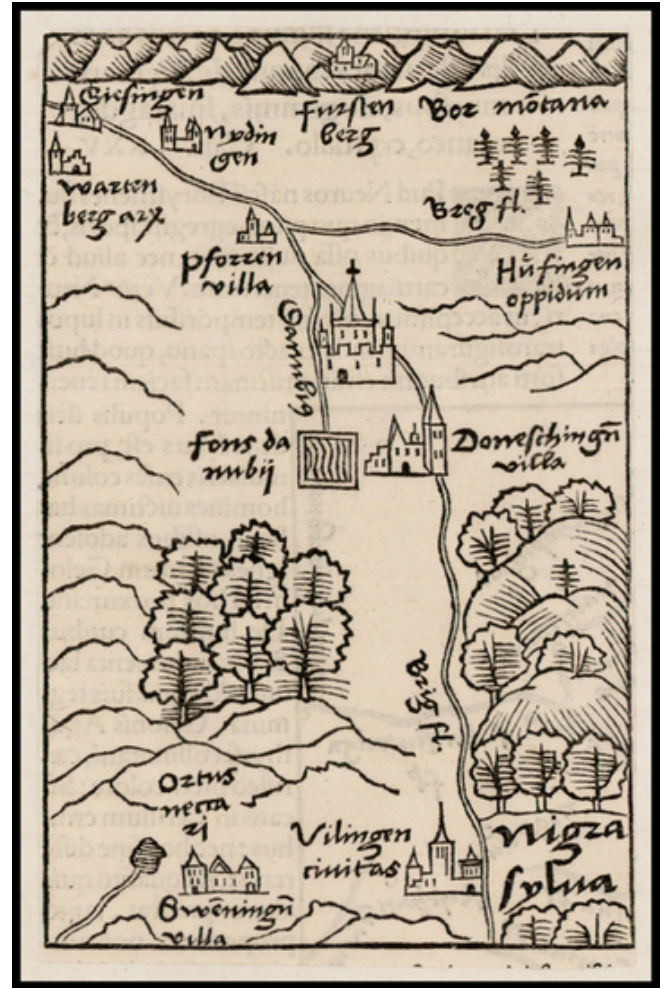 Giesingen
Fursten
berg
Bor mōtana
Nydin
gen
Warten
berg arx
Breg fl.
Pforren
villa
Hufingen
oppidum
Fons da
nubij
Doneschingn̄
villa
Brig fl.
Ortus
necca
ri
Vilingen
civitas
Nigra
sylua
Swēningn̄
villa